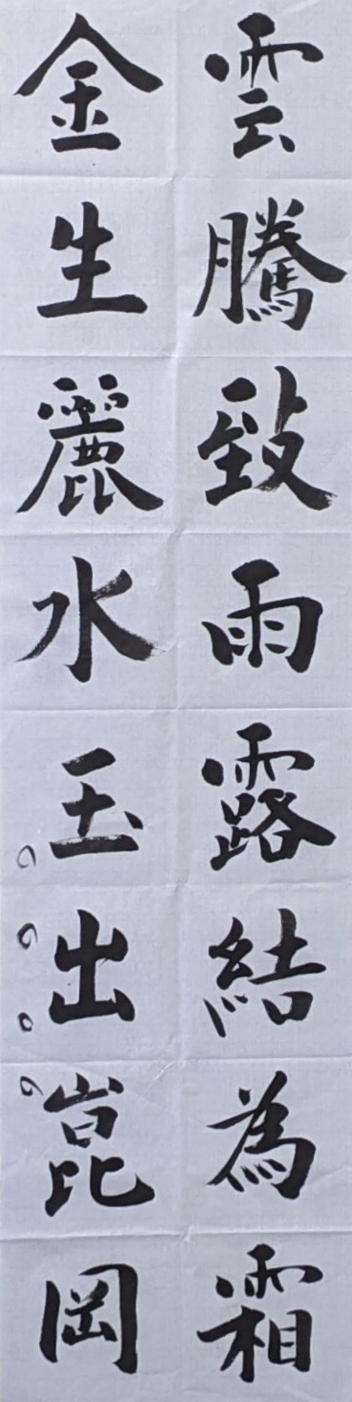 雲騰致雨露結為霜
金生麗水玉出崑岡